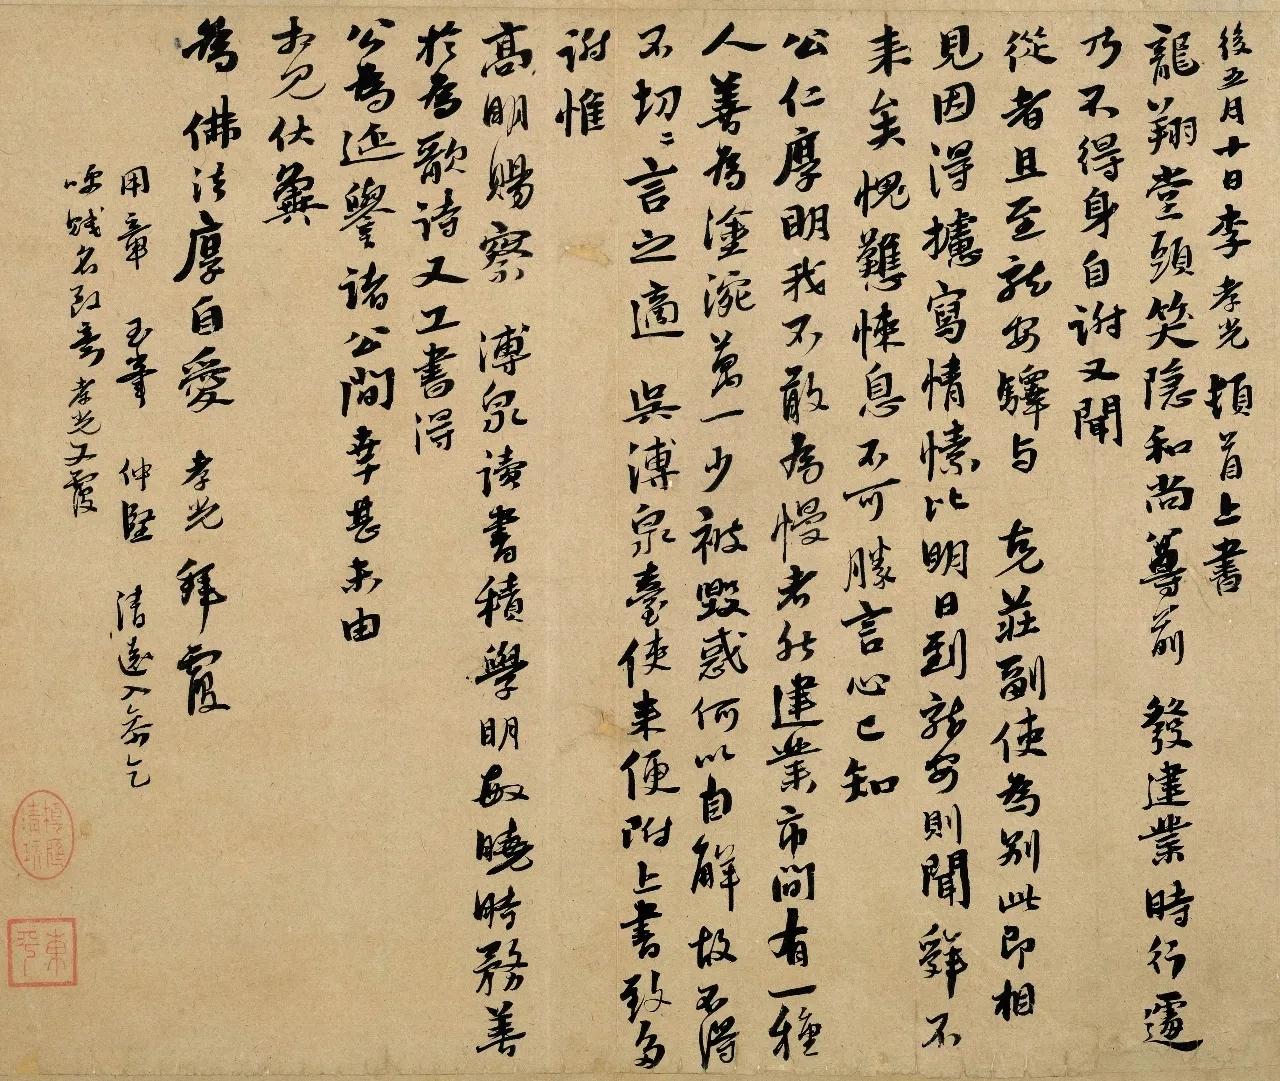 後五月十日李孝光頓首上書
龍翔堂頭笑隱和尚尊前 發建業時行遽
乃不得身自謝又聞
從者且至龍安驛與 克莊副使為別此即相
見因得攄寫情愫比明日到龍安則聞舜不
来矣愧難悚息不可勝言心已知
公仁厚明我不敢為慢者然建業市間有一種
人善為塗涴萬一少被毀惑何以自解故不得
不切〻言之適 吳溥泉臺使来便附上書致多
謝惟
高明賜察 溥泉讀書積學明敏曉時務善
於為歌詩又工書得
公為延譽諸公間幸甚未由
相見伏冀
為佛法厚自愛 孝光拜覆
用章 玉峯 仲堅 清遠入
賤名致意孝光又覆
東